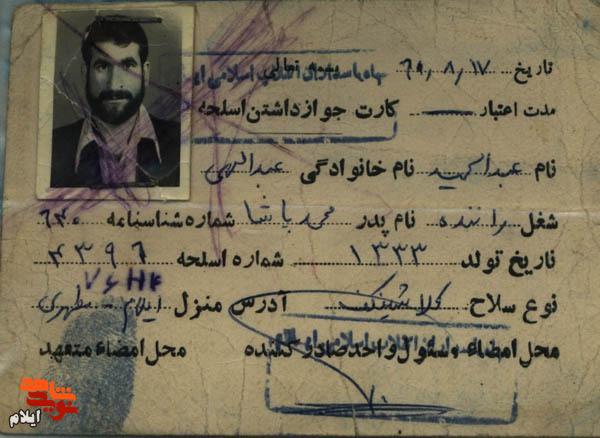 بسمه تعالی
سپاه پاسداران انقلاب اسلامی
تاریخ ۶۱٫۸٫۱۷
مدت اعتبار
کارت جواز داشتن اسلحه
نام عبدالحمید نام خانوادگی عبدالهی
شغل راننده نام پدر محمد پاشا شماره شناسنامه ۶۴۰
تاریخ تولد ۱۳۳۳ شماره اسلحه ۴۳۹۶
نوع سلاح کلاشینکف آدرس منزل ایلام مطهری
محل امضاء مسئول واحد صادر کننده محل امضاء متعهد
نوید شاهد
ایلام